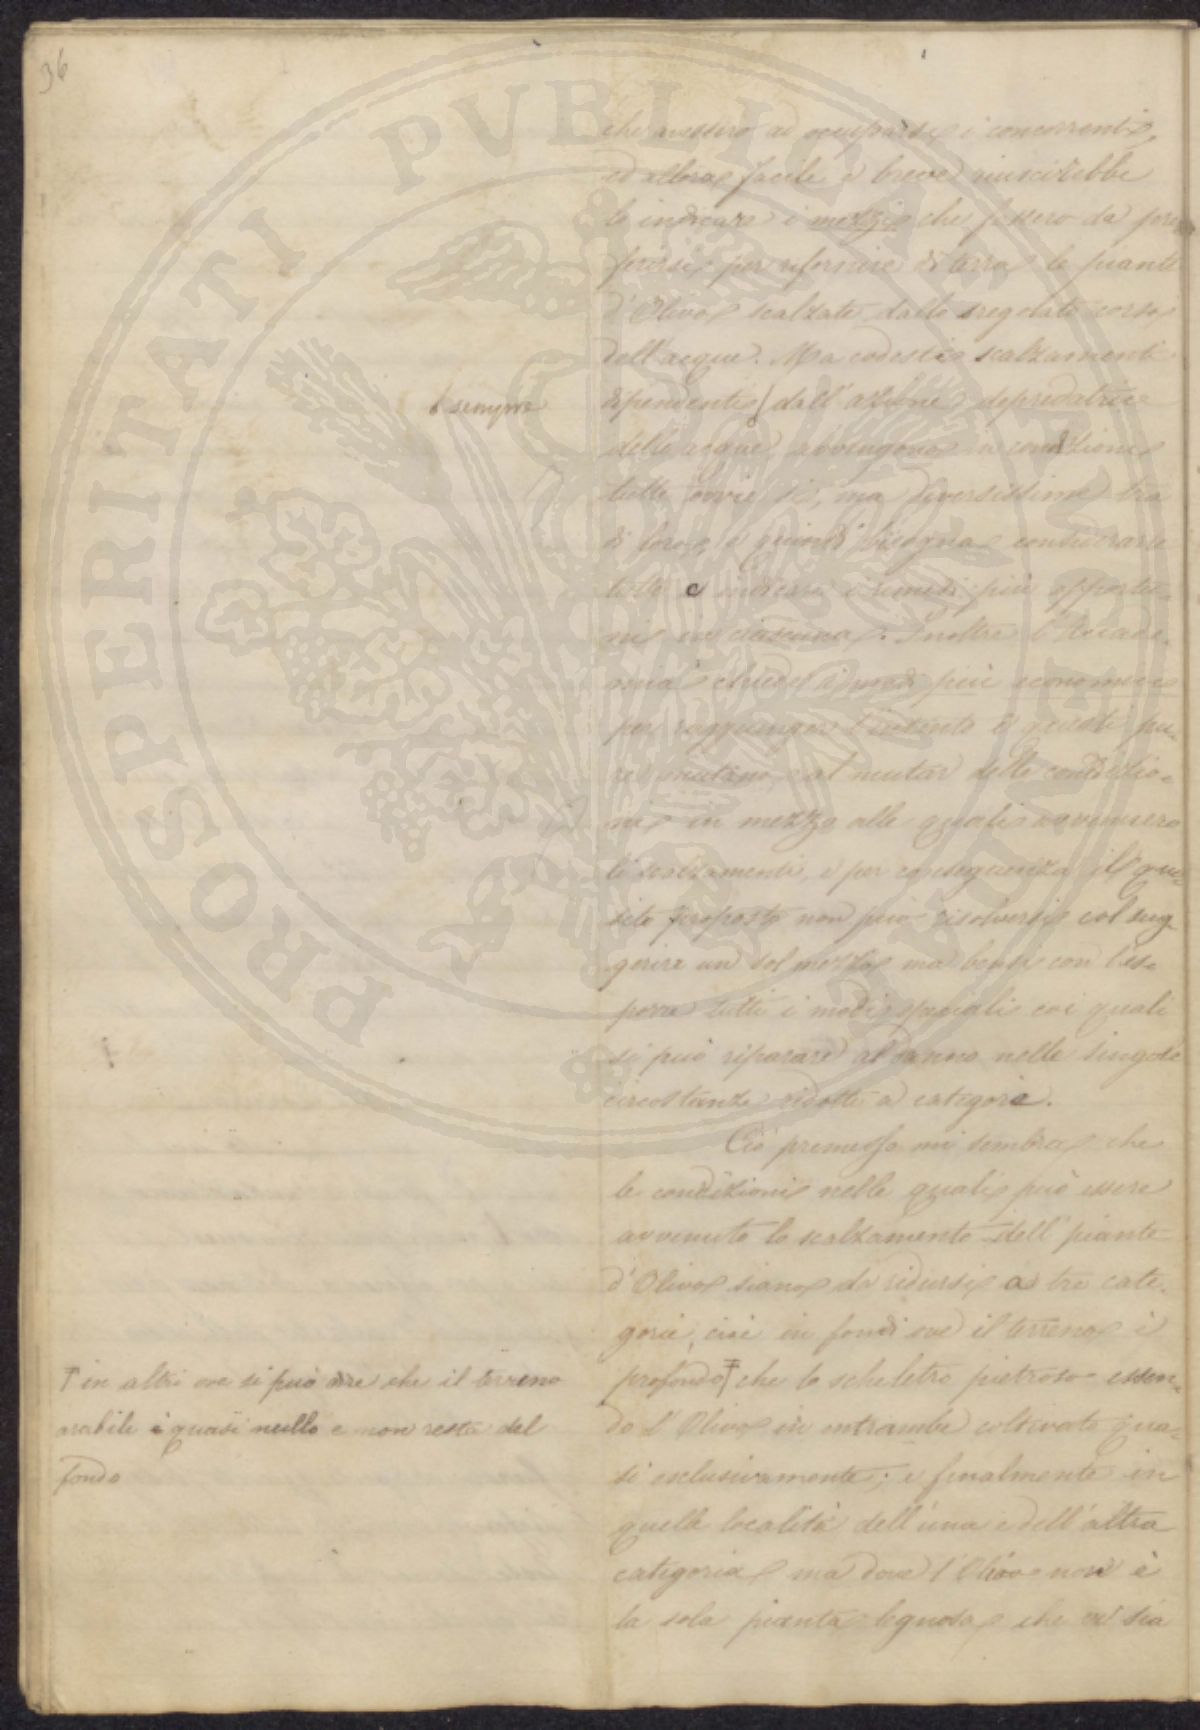 36
che avessero ad occuparsi i concorrenti,
ed allora facile e breve riuscirebbe
lo indicare i mezzi che fossero da pre
ferirsi per rifornire di terra le piante
d'Olivo scalzate dallo sregolato corso
dell'acque. Ma codesti scalzamenti
sempre
dipendenti dall'azione depredatrice
delle acque avvengono in condizioni
tutte ovvie sì, ma diversissime tra
di loro, e quindi bisogna considerarle
tutte e indicare i rimedi più opportu-
ni in ciascuna. Inoltre l'Accade-
mia chiede i modi più economici
per raggiungere l'intento e questi pu-
re mutano al mutar delle condizio-
ni in mezzo alle quali avvennero
li scalzamenti, e per conseguenza il que-
sito proposto non può risolversi col sug-
gerire un sol mezzo ma bensì con l'es-
porre tutti i modi speciali coi quali
si può riparare al danno nelle singole
circostanze ridotte a categorie.
Ciò premesso mi sembra che
le condizioni nelle quali può essere
avvenuto lo scalzamento dell' piante
d'Olivo siano da ridursi ad tre cate-
gorie, cioè in fondi ove il terreno è
profondo che lo scheletro pietroso essen-
† in altri ove si può dire che il terreno
arabile è quasi nullo e non resta del
fondo
do l'Olivo in entrambe coltivato qua-
si esclusivamente; e finalmente in
quelle località dell'una e dell'altra
categoria ma dove l'Olivo non è
la sola pianta legnosa che vi sia
PROSPERITATI PUBLICAE AUGENDAE